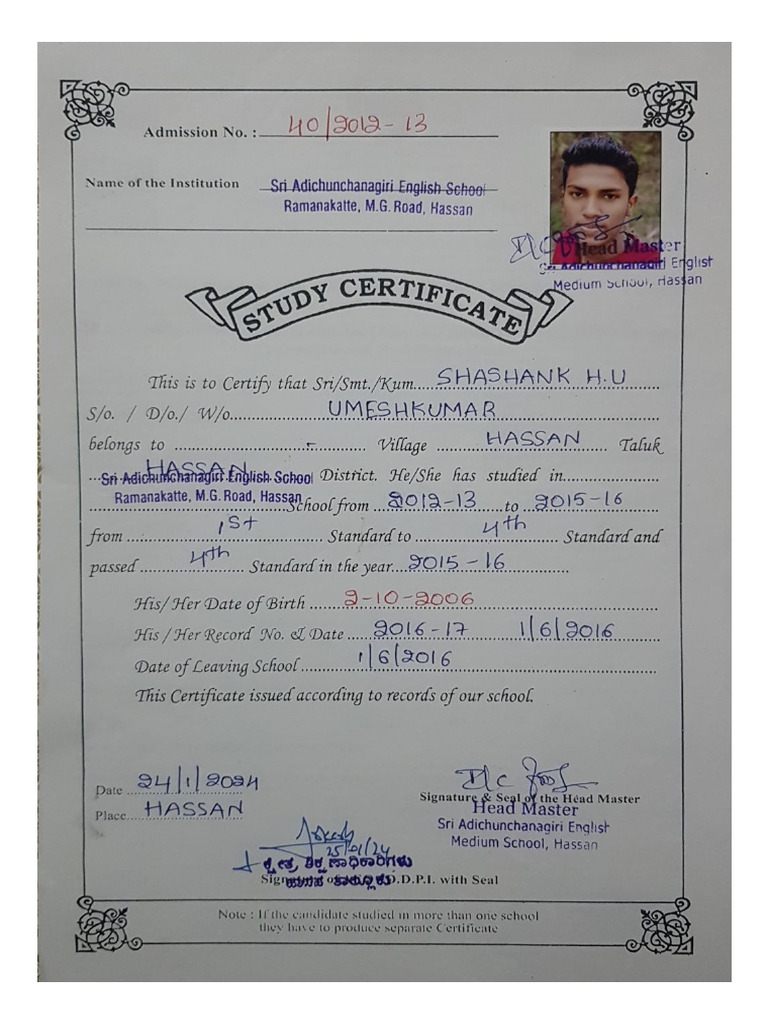 Admission No. : 40/2012-13
Name of the Institution Sri Adichunchanagiri English School
Ramanakatte, M.G. Road, Hassan
Head Master
Sri Adichunchanagiri English
Medium School, Hassan
STUDY CERTIFICATE
This is to Certify that Sri/Smt./Kum....SHASHANK H.U
S/o. / D/o./ W/o...UMESHKUMAR
belongs to ........-........ Village HASSAN Taluk
HASSAN District. He/She has studied in
Sri Adichunchanagiri English School
Ramanakatte, M.G. Road, Hassan School from 2012-13 to 2015-16
from 1st Standard to 4th Standard and
passed 4th Standard in the year 2015-16
His/ Her Date of Birth 2-10-2006
His / Her Record No. & Date 2016-17 1/6/2016
Date of Leaving School 1/6/2016
This Certificate issued according to records of our school.
Date 24/1/2024
Place HASSAN
Signature & Seal of the Head Master
Head Master
Sri Adichunchanagiri English
Medium School, Hassan
25/01/24
ಕ್ಷೇತ್ರ ಶಿಕ್ಷಣಾಧಿಕಾರಿಗಳು
ಹಾಸನ ತಾಲ್ಲೂಕು
D.D.P.I. with Seal
Note : If the candidate studied in more than one school
they have to produce separate Certificate